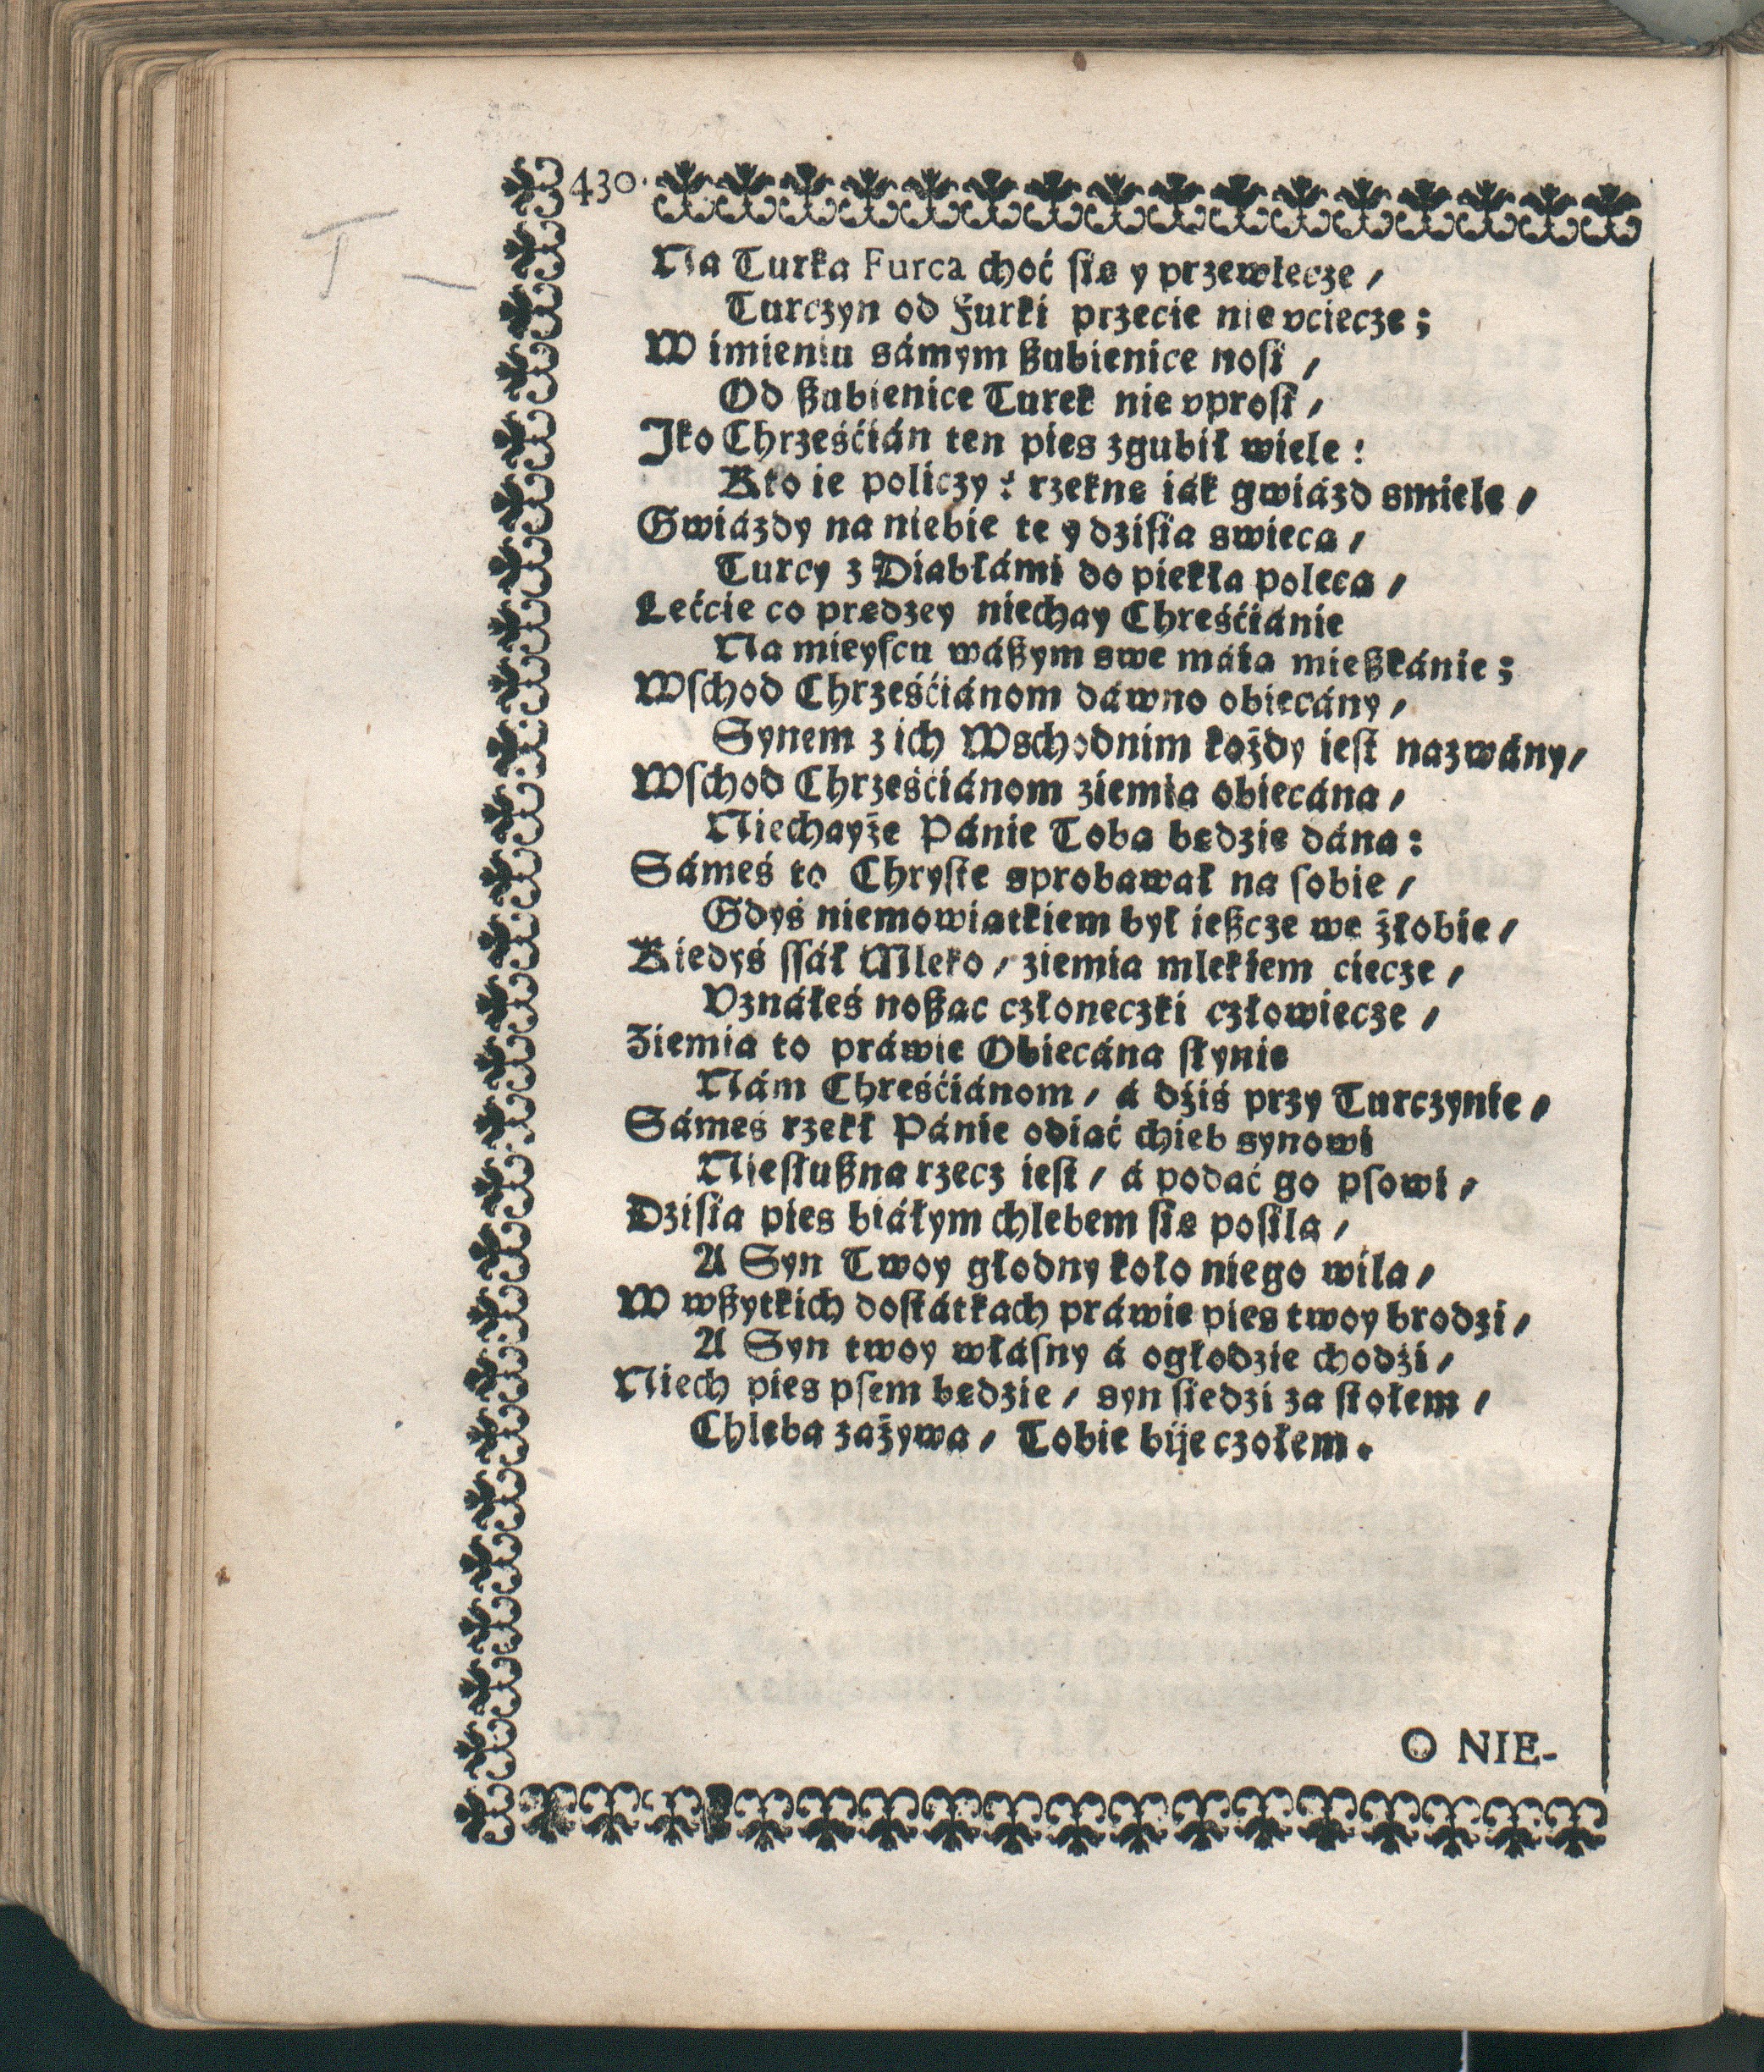 430.
Na Turka Furca choć ſię y przewlecze /
Turczyn od Furki przecie nie vciecze ;
W imieniu sámym ßubienice noſi /
Od ßubienice Turek nie vproſi /
Jko Chrześćián ten pies zgubił wiele :
Kto ie policzy : rzeknę iák gwiázd smiele /
Gwiázdy na niebie te y dziſia swiecą /
Turcy z Diabłámi do piekła polecą /
Lećcie co prędzey niechay Chreśćiánie
Na mieyſcu wáßym swe máią mießkánie ;
Wſchod Chrześćiánom dáwno obiecány /
Synem z ich Wschodnim każdy ieſt nazwány /
Wſchod Chrześćiánom ziemią obiecána /
Niechayże Pánie Tobą będzie dána :
Sámeś to Chryſte sprobawał na ſobie /
Gdyś niemowiątkiem był ießcze we żłobie /
Kiedyś ſſáł Mleko / ziemia mlekiem ciecze /
Vznáłeś noßąc członeczki człowiecze /
Ziemia to práwie Obiecána ſłynie
Nám Chreśćiánom / á dźiś przy Turczynie /
Sámeś rzekł Pánie odiąć chieb synowi
Nieſłußna rzecz ieſt / á podáć go pſowi /
Dziſia pies biáłym chlebem ſię poſila /
A Syn Twoy głodny koło niego wila /
W wßytkich doſtátkach práwie pies twoy brodzi /
A Syn twoy właſny á ogłodzie chodźi /
Niech pies pſem będzie / syn ſiedzi za ſtołem /
Chleba zażywa / Tobie bije czołem.
O NIE-